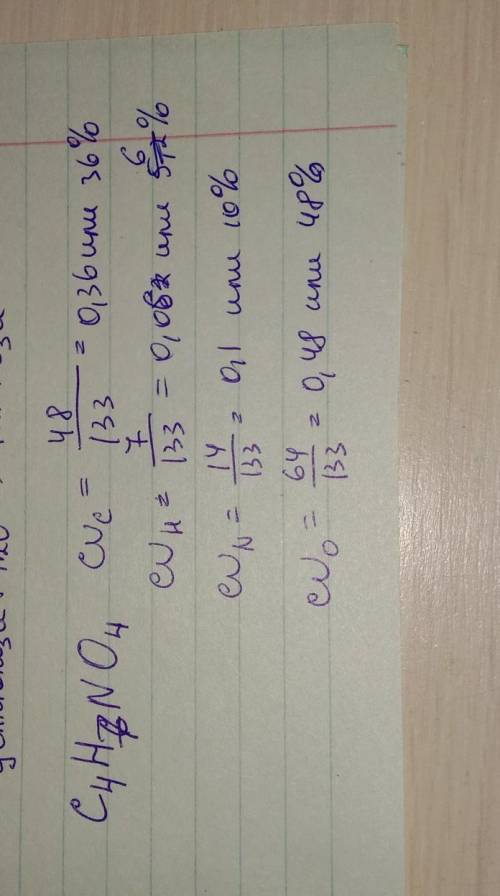 C₄H₇NO₄
ω_C = 48/133 = 0,36 или 36%
ω_H = 7/133 = 0,05 или 6%
ω_N = 14/133 = 0,1 или 10%
ω_O = 64/133 = 0,48 или 48%